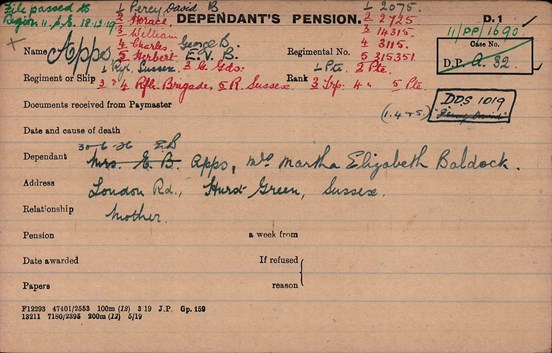 File passed to
Region 11. S.E. 18.12.19
DEPENDANT'S PENSION.
D. 1
11/PP/1690
1 Percy David B
2 Horace.
3 William
4 Charles. George B.
5 Herbert. E.V.B.
1 2075.
2 2725
3 14315.
4 3115.
5 315351
Name Apps
Regimental No.
Case No.
D.P. A. 32.
Regiment or Ship 1 Ryl. Sussex. 3 G. Gds.
2 & 4 Rfle. Brigade, 5 R. Sussex
Rank 1 Pte. 2 Pte.
3 Trp. 4 " 5 Pte.
Documents received from Paymaster
(1. 4 & 5)
DDS 1019
"Percy David"
Date and cause of death
30-6-26 E.B
Dependant Mrs. E. B. Apps, Mrs Martha Elizabeth Baldock.
Address London Rd., Hurst Green, Sussex.
Relationship Mother.
Pension a week from
Date awarded If refused
Papers reason
F12293 47401/2553 100m (12) 3 19 J.P. Gp. 159
13211 7180/2395 200m (12) 5/19